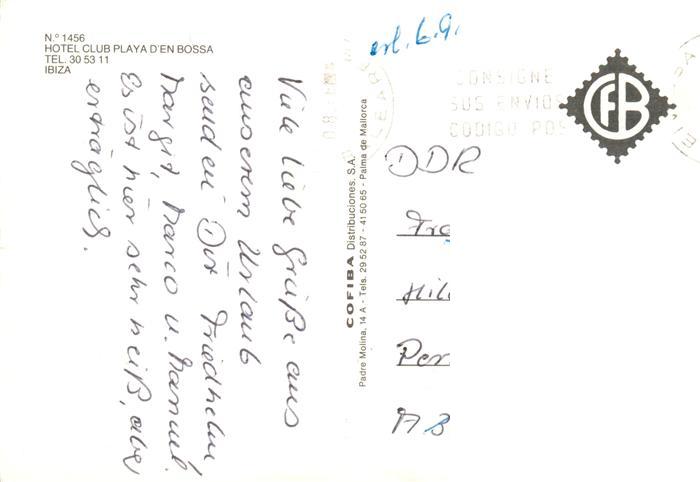 N.º 1456
HOTEL CLUB PLAYA D'EN BOSSA
TEL. 30 53 11
IBIZA
Viele liebe Grüße aus
unserem Urlaub
senden Dir Friedhelm
Margit, Marco u. Manuel.
Es ist hier sehr heiß, aber
erträglich.
COFIBA Distribuciones, S.A.
Padre Molina, 14 A - Tels. 29 52 87 - 41 50 65 - Palma de Mallorca
erl. 6.9.
CONSIGNE
SUS ENVIOS
CODIGO POS
CFB
DDR
Fra
Hil
Per